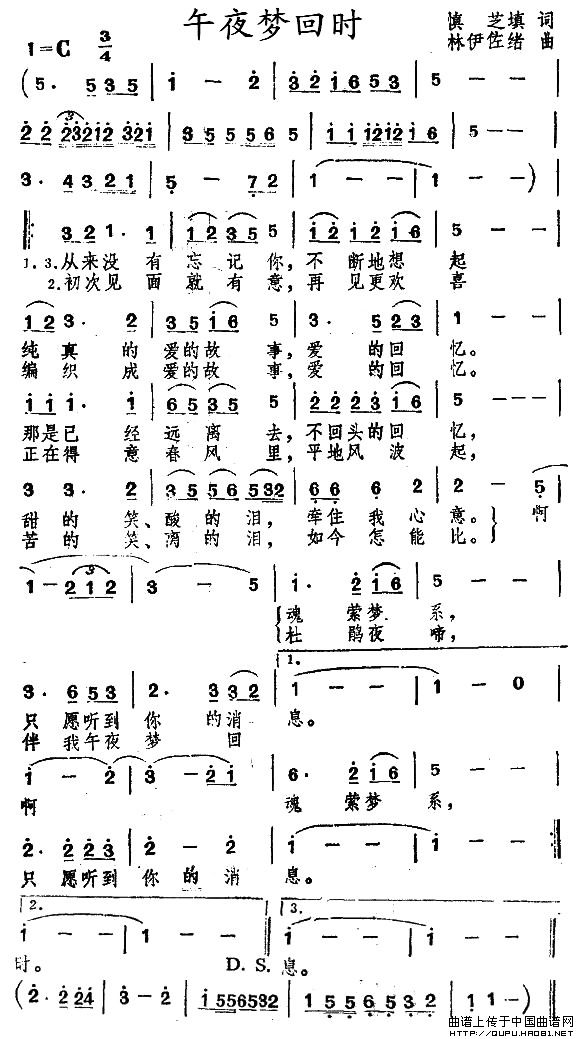 午夜梦回时
慎 芝填 词
林伊佐绪 曲
1=C 3/4
(5. 5 3 5 | 1 — 2 | 3 2 1 6 5 3 | 5 — —
2 2 2 3 2 1 2 3 2 1 | 3 5 5 5 6 5 | 1 1 1 2 1 2 1 6 | 5 — —
3. 4 3 2 1 | 5 — 7 2 | 1 — — | 1 — —)
3 2 1. 1 | 1 2 3 5 5 | 1 2 1 2 1 6 | 5 — —
1.3.从来没 有 忘 记 你,不 断地想 起
2.初次见 面 就 有 意,再 见更欢 喜
1 2 3. 2 | 3 5 1 6 5 | 3. 5 2 3 | 1 — —
纯 真 的 爱的故 事,爱 的回 忆。
编 织 成 爱的故 事,爱 的回 忆。
1 1 1. 1 | 6 5 3 5 5 | 2 2 2 3 1 6 | 5 — —
那是已 经 远 离 去,不回头的回 忆,
正在得 意 春 风 里,平地风 波 起,
3 3. 2 | 3 5 5 6 5 3 2 | 6 6 6 2 | 2 — 5
甜 的 笑、酸 的 泪, 牵住 我 心 意。啊
苦 的 笑、离 的 泪, 如今 怎 能 比。
1 — 2 1 2 | 3 — 5 | 1. 2 1 6 | 5 — —
魂 萦梦 系,
杜 鹃夜 啼,
1.
3. 6 5 3 | 2. 3 3 2 | 1 — — | 1 — 0
只 愿听到 你 的消 息。
伴 我午夜 梦 回
1 — 2 | 3 — 2 1 | 6. 2 1 6 | 5 — —
啊 魂 萦梦 系,
2. 2 2 3 | 2 — 2 | 1 — — | 1 — —
只 愿听到 你 的 消 息。
2. 3.
1 — — | 1 — — | 1 — — | 1 — —
时。 D. S. 息。
(2. 2 2 4 | 3 — 2 | 1 5 5 6 5 3 2 | 1 5 5 5 6 5 3 2 | 1 — —)
曲谱上传于中国曲谱网
http://QUPU.HAO81.NET